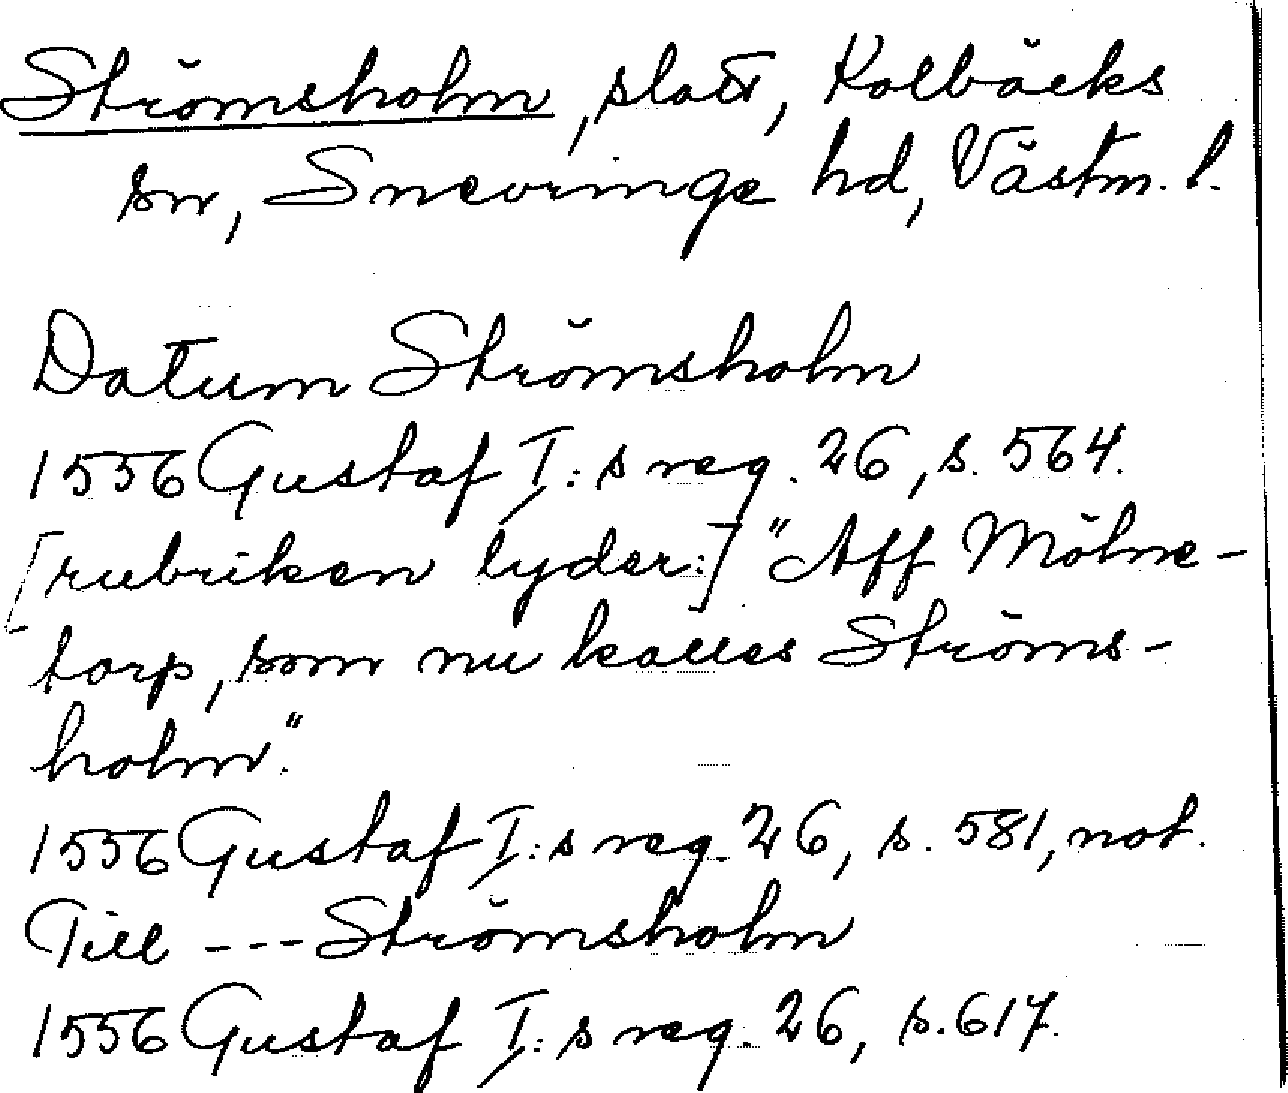 Strömsholm, slott, Kolbäcks
sn, Snevringe hd, Västm. l.
Datum Strömsholm
1556 Gustaf I:s reg. 26, s. 564.
[rubriken lyder:] "Aff Mölne-
torp, som nu kalles Ströms-
holm".
1556 Gustaf I:s reg. 26, s. 581, not.
Till --- Strömsholm
1556 Gustaf I:s reg. 26, s. 617.